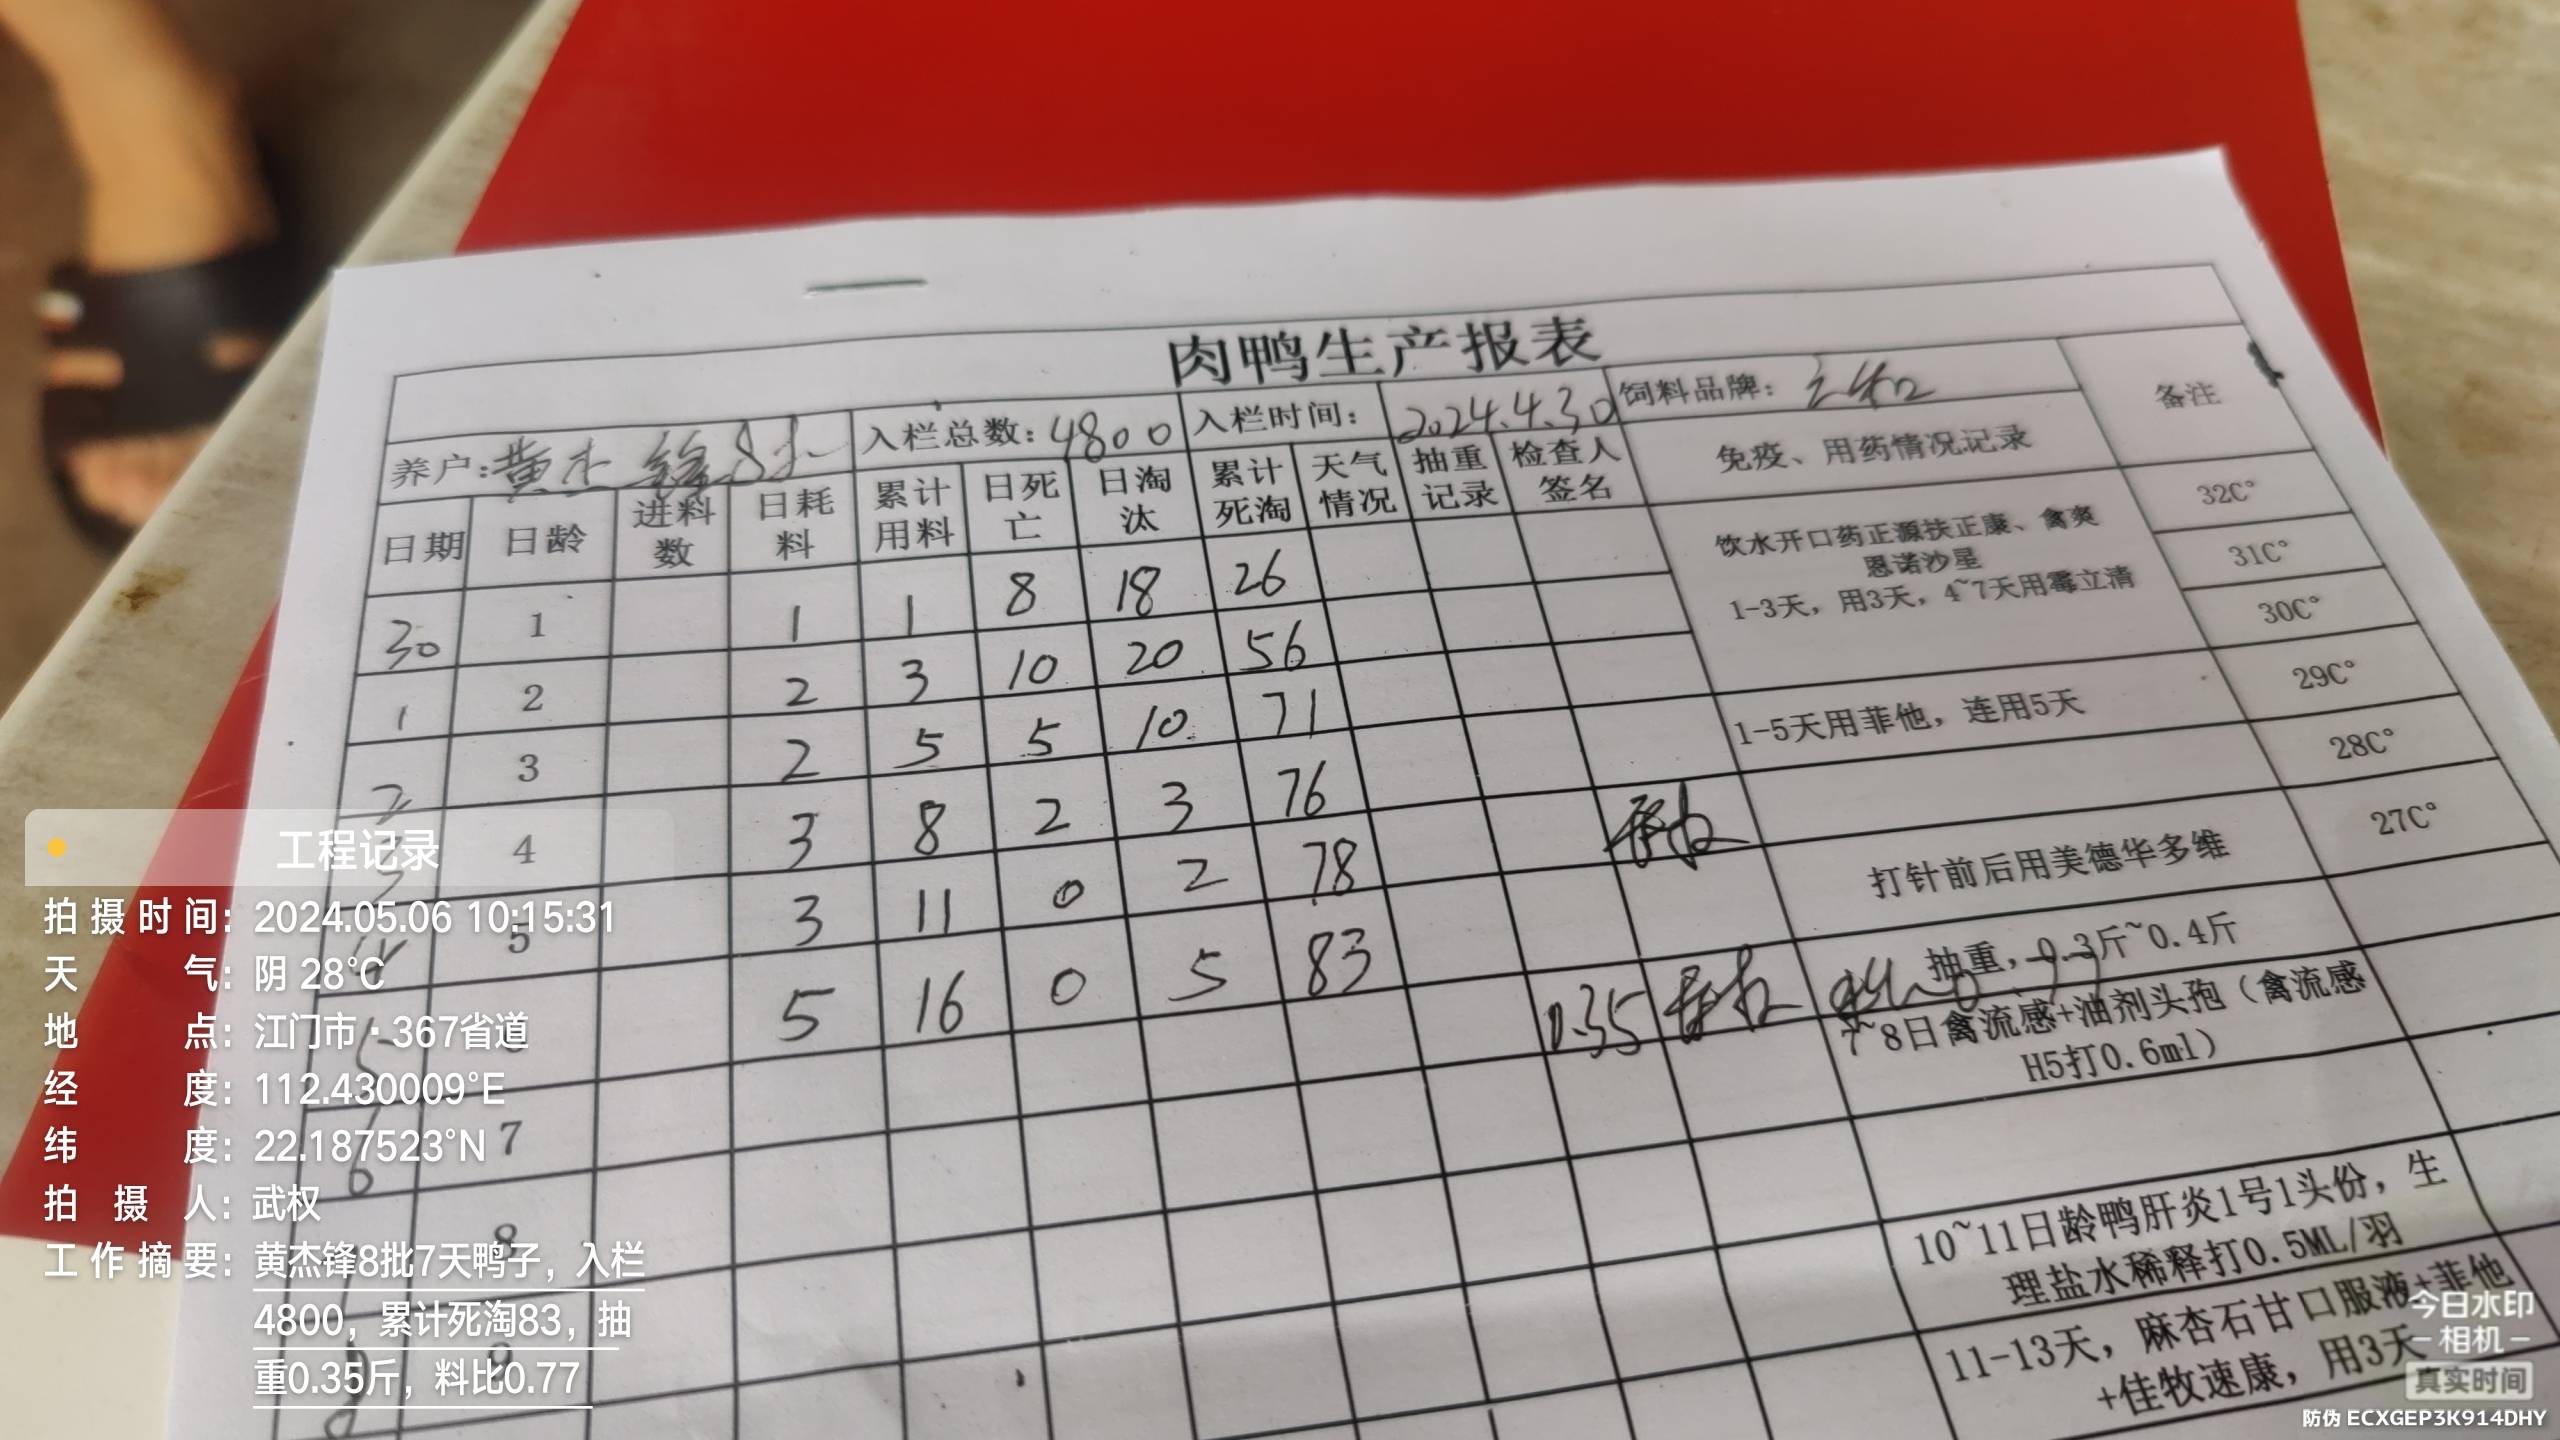 肉鸭生产报表
养户:黄杰锋8批 入栏总数:4800 入栏时间: 2024.4.30 饲料品牌: 备注
日期 日龄 进料数 日耗料 累计用料 日死亡 日淘汰 累计死淘 天气情况 抽重记录 检查人签名 免疫、用药情况记录
30 1 1 1 8 18 26 32C°
1 2 2 3 10 20 56 31C°
2 3 2 5 5 10 71 30C°
3 4 3 8 2 3 76 29C°
4 5 3 11 0 2 78 28C°
5 5 16 0 5 83 0.35 27C°
6 7
8
9
饮水开口药正源扶正康、禽爽
恩诺沙星
1-3天，用3天，4~7天用霉立清
1-5天用菲他，连用5天
打针前后用美德华多维
抽重，0.3斤~0.4斤
7~8日禽流感+油剂头孢（禽流感
H5打0.6ml）
10~11日龄鸭肝炎1号1头份，生
理盐水稀释打0.5ML/羽
11-13天，麻杏石甘口服液+菲他
+佳牧速康，用3天
工程记录
拍摄时间：2024.05.06 10:15:31
天气：阴 28°C
地点：江门市·367省道
经度：112.430009°E
纬度：22.187523°N
拍摄人：武权
工作摘要：黄杰锋8批7天鸭子，入栏
4800，累计死淘83，抽
重0.35斤，料比0.77
今日水印
-相机-
真实时间
防伪 ECXGEP3K914DHY